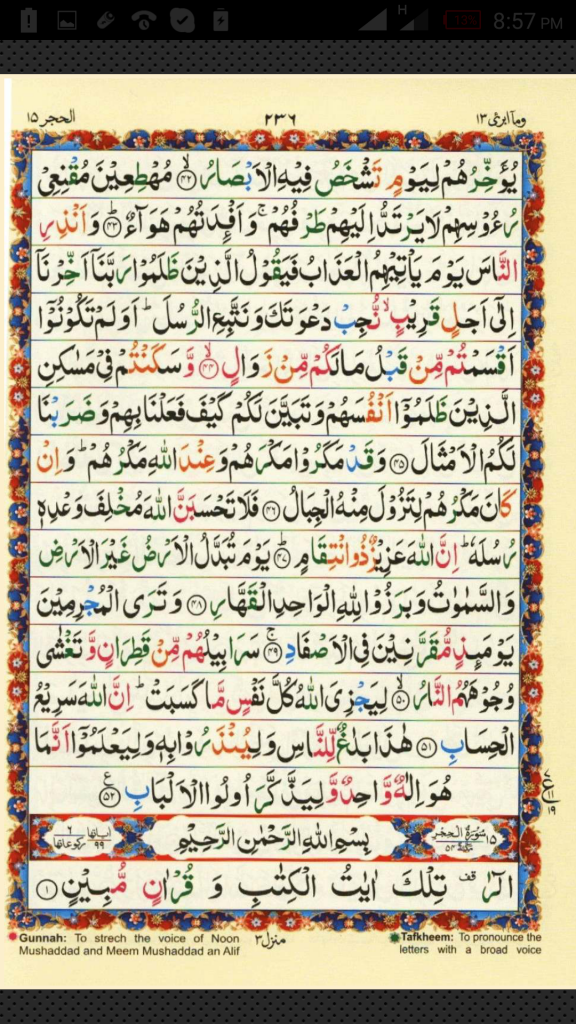 H 13% 8:57 PM
وما ابرئ ١٣ ٢٣٦ الحجر ١٥
يُؤَخِّرُهُمْ لِيَوْمٍ تَشْخَصُ فِيْهِ الْاَبْصَارُ ﴿۴۲﴾ مُهْطِعِيْنَ مُقْنِعِيْ
رُءُوْسِهِمْ لَا يَرْتَدُّ اِلَيْهِمْ طَرْفُهُمْ ۚ وَ اَفْـِٕدَتُهُمْ هَوَآءٌ ﴿۴۳﴾ وَ اَنْذِرِ
النَّاسَ يَوْمَ يَاْتِيْهِمُ الْعَذَابُ فَيَقُوْلُ الَّذِيْنَ ظَلَمُوْا رَبَّنَاۤ اَخِّرْنَاۤ
اِلٰۤى اَجَلٍ قَرِيْبٍ ۙ نُّجِبْ دَعْوَتَكَ وَ نَتَّبِعِ الرُّسُلَ ؕ اَوَ لَمْ تَكُوْنُوْۤا
اَقْسَمْتُمْ مِّنْ قَبْلُ مَا لَكُمْ مِّنْ زَوَالٍ ﴿۴۴﴾ ۙ وَّ سَكَنْتُمْ فِيْ مَسٰكِنِ
الَّذِيْنَ ظَلَمُوْۤا اَنْفُسَهُمْ وَ تَبَيَّنَ لَكُمْ كَيْفَ فَعَلْنَا بِهِمْ وَ ضَرَبْنَا
لَكُمُ الْاَمْثَالَ ﴿۴۵﴾ وَ قَدْ مَكَرُوْا مَكْرَهُمْ وَ عِنْدَ اللّٰهِ مَكْرُهُمْ ؕ وَ اِنْ
كَانَ مَكْرُهُمْ لِتَزُوْلَ مِنْهُ الْجِبَالُ ﴿۴۶﴾ فَلَا تَحْسَبَنَّ اللّٰهَ مُخْلِفَ وَعْدِهٖ
رُسُلَهٗ ؕ اِنَّ اللّٰهَ عَزِيْزٌ ذُو انْتِقَامٍ ﴿۴۷﴾ ؕ يَوْمَ تُبَدَّلُ الْاَرْضُ غَيْرَ الْاَرْضِ
وَ السَّمٰوٰتُ وَ بَرَزُوْا لِلّٰهِ الْوَاحِدِ الْقَهَّارِ ﴿۴۸﴾ وَ تَرَى الْمُجْرِمِيْنَ
يَوْمَىِٕذٍ مُّقَرَّنِيْنَ فِي الْاَصْفَادِ ﴿۴۹﴾ ۚ سَرَابِيْلُهُمْ مِّنْ قَطِرَانٍ وَّ تَغْشٰى
وُجُوْهَهُمُ النَّارُ ﴿۵۰﴾ ۙ لِيَجْزِيَ اللّٰهُ كُلَّ نَفْسٍ مَّا كَسَبَتْ ؕ اِنَّ اللّٰهَ سَرِيْعُ
الْحِسَابِ ﴿۵۱﴾ هٰذَا بَلٰغٌ لِّلنَّاسِ وَ لِيُنْذَرُوْا بِهٖ وَ لِيَعْلَمُوْۤا اَنَّمَا
هُوَ اِلٰهٌ وَّاحِدٌ وَّ لِيَذَّكَّرَ اُولُوا الْاَلْبَابِ ﴿۵۲﴾ ع
٧ ع ١١ ١٩
١٥ سُوْرَةُ الْحِجْر مَكِّيَّةٌ ٥٤ بِسْمِ اللّٰهِ الرَّحْمٰنِ الرَّحِيْمِ اٰيَاتُهَا ٩٩ رُكُوْعَاتُهَا ٦
الٓرٰ قف تِلْكَ اٰيٰتُ الْكِتٰبِ وَ قُرْاٰنٍ مُّبِيْنٍ ﴿۱﴾
Gunnah: To strech the voice of Noon
Mushaddad and Meem Mushaddad an Alif
منزل ٣
Tafkheem: To pronounce the
letters with a broad voice